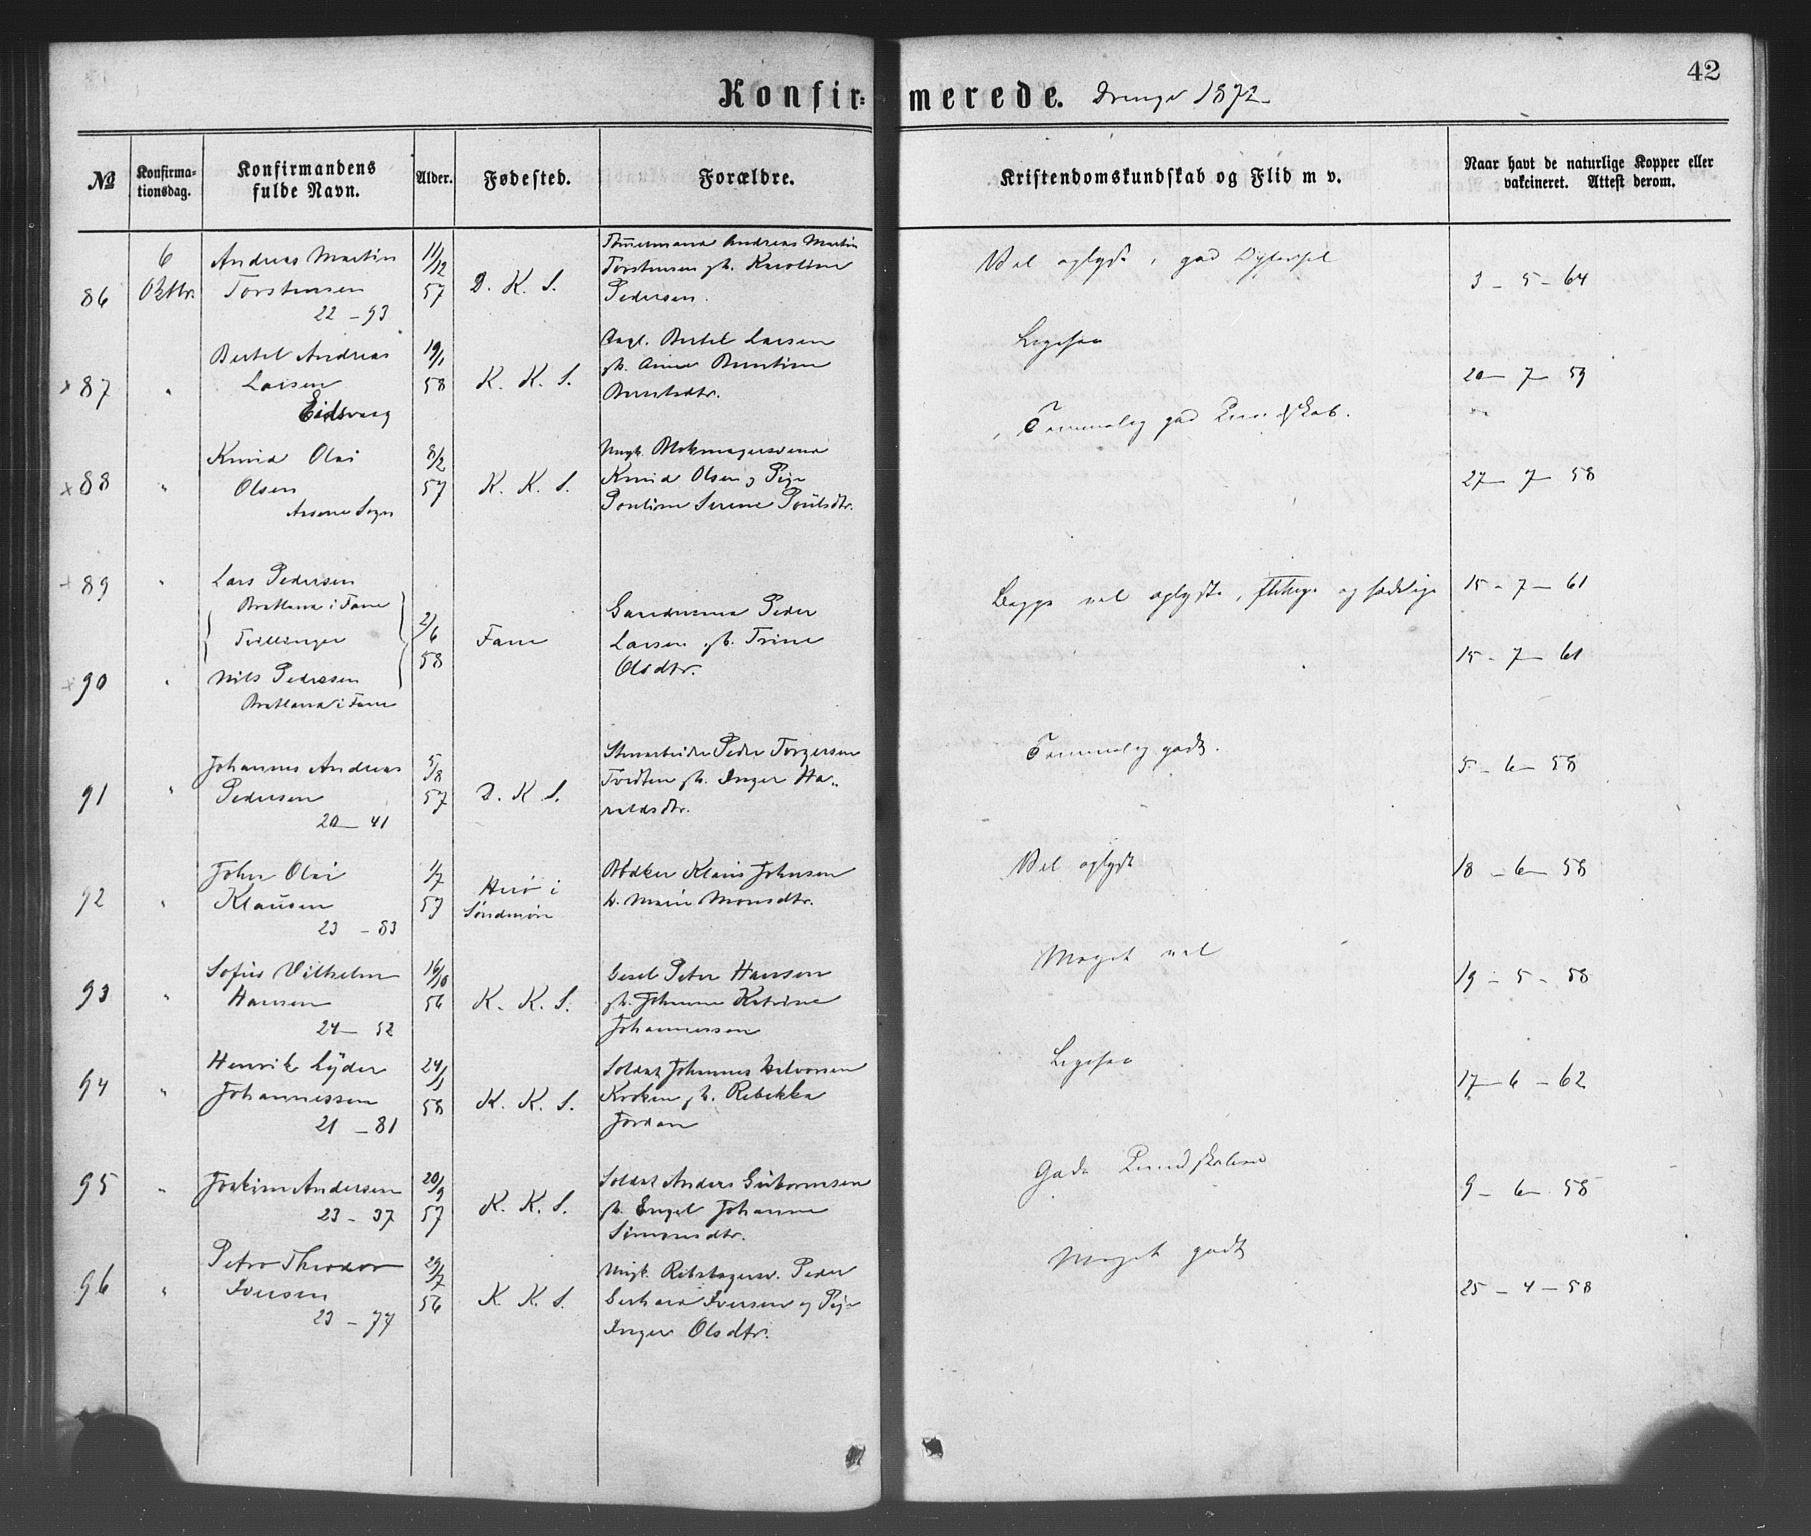 42
Konfirmerede. Drenge 1872
№ Konfirmationsdag. Konfirmandens fulde Navn. Alder. Fødested. Forældre. Kristendomskundskab og Flid m v. Naar havt de naturlige Kopper eller vakcineret. Attest derom.
86 6 Oktbr. Andreas Martin 11/12 57 D. K. S. Tømmermand Andreas Martin
Torstensen Torstensen gh. Karoline
22 – 93 Pedersen. Vel oplyst, god 3 – 5 – 64
× 87 " Bertel Andreas 19/1 58 K. K. S. Bertel Larsen
Larsen gh. Anne
Eidsvaag Berntsdtr. Ligesaa 20 – 7 – 59
× 88 " Knud Olai 8/2 57 K. K. S. Ungk.
Olsen Knud Olsen og Pige
Sogn Serine Poulsdtr. Temmelig god Kundskab. 27 – 7 – 58
× 89 " Lars Pedersen
Bratland i Fane 15 – 7 – 61
Tvillinger 2/6 58 Fane Gaardmand Peder
Larsen gh. Trine
Olsdtr. Begge vel oplyste, flittige og sædelige
× 90 " Nils Pedersen 15 – 7 – 61
Bratland i Fane
91 " Johannes Andreas 5/8 57 D. K. S. Stenarbeider Peder Torgersen
Pedersen Tvedten gh. Inger Ha-
20 – 41 raldsdtr. Temmelig godt. 5 – 6 – 58
92 " John Olai 1/7 57 Herø i Søndmør Bødker Klaus Johnsen
Klausen Marie Monsdtr.
23 – 83 Vel oplyst 18 – 6 – 58
93 " Sofus Vilhelm 16/10 56 K. K. S. Peter Hansen
Hansen gh. Johanne Katrine
24 – 52 Johannessen Meget vel 19 – 5 – 58
94 " Henrik Lyder 24/1 58 K. K. S. Soldat Johannes Halvorsen
Johannessen Kroken gh. Rebekka
21 – 81 Jordan Ligesaa 17 – 6 – 62
95 " Joakim Andersen 20/9 57 K. K. S. Soldat Anders Guttormsen
23 – 37 gh. Engel Johanne
Simonsdtr. Gode Kundskaber 9 – 6 – 58
96 " Petter Theodor 29/7 56 K. K. S. Ungk. Peder
Iversen Gerhard Iversen og Pige
23 – 77 Inger Olsdtr. Meget godt 25 – 4 – 58